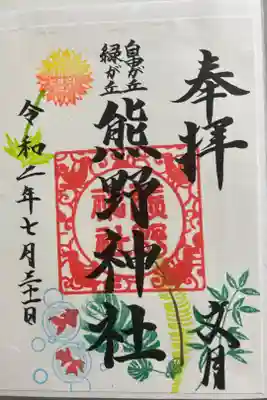 奉拝
自由が丘
緑が丘
熊野神社
文月
令和二年七月三十一日